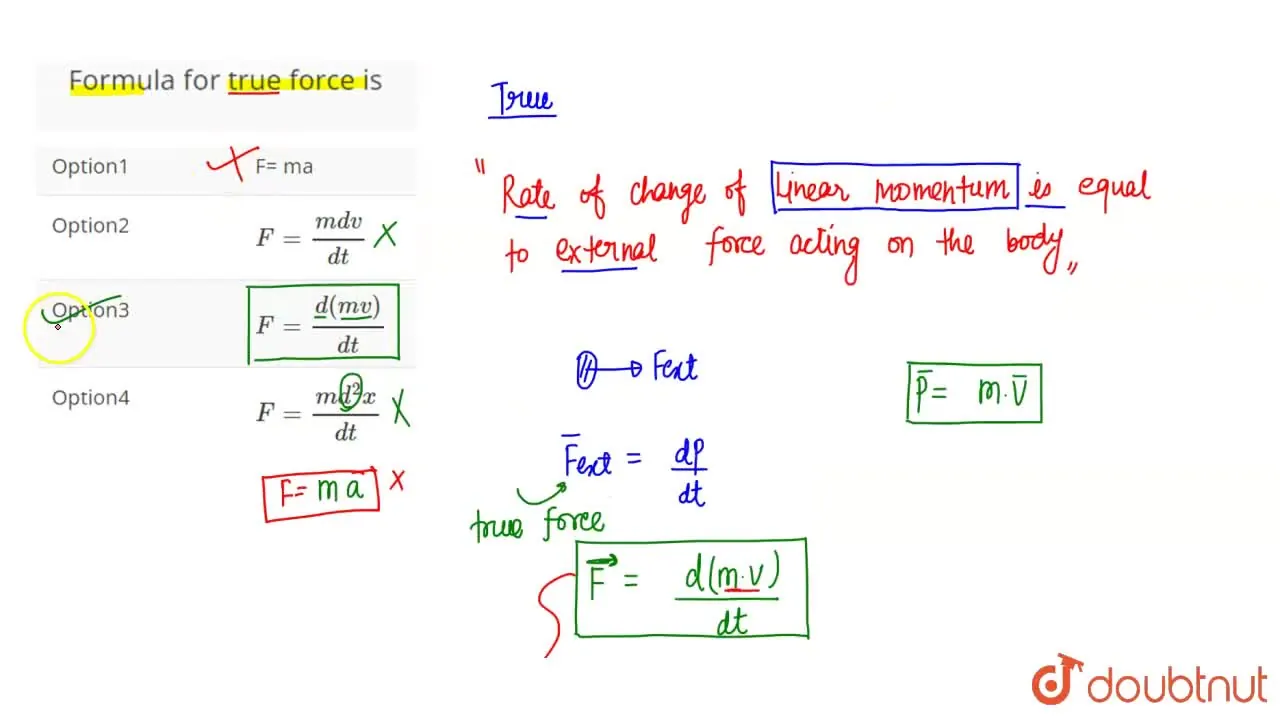 Formula for true force is
Option1 F= ma
Option2 F = mdv/dt X
Option3 F = d(mv)/dt
Option4 F = md²x/dt X
F= ma X
True
"Rate of change of Linear momentum is equal
to external force acting on the body"
Fext
P̅ = m.V̅
F̅ext = dP/dt
true force
F⃗ = d(m.v)/dt
doubtnut